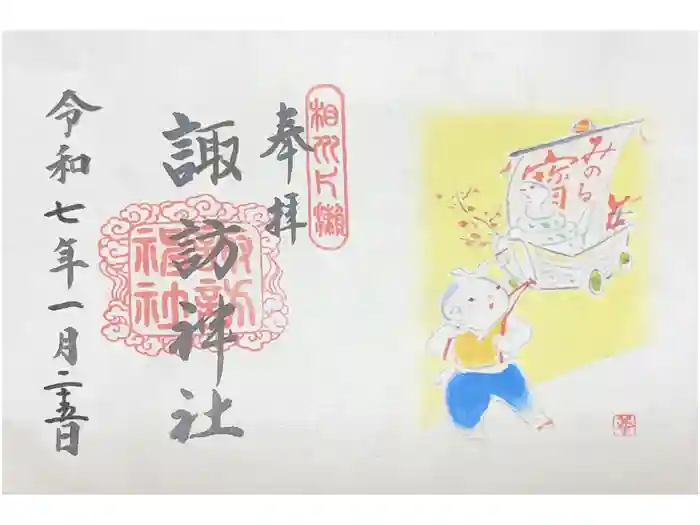 奉拝
相州片瀬
諏訪神社
諏訪
神社
令和七年一月二十五日
みのる
寳